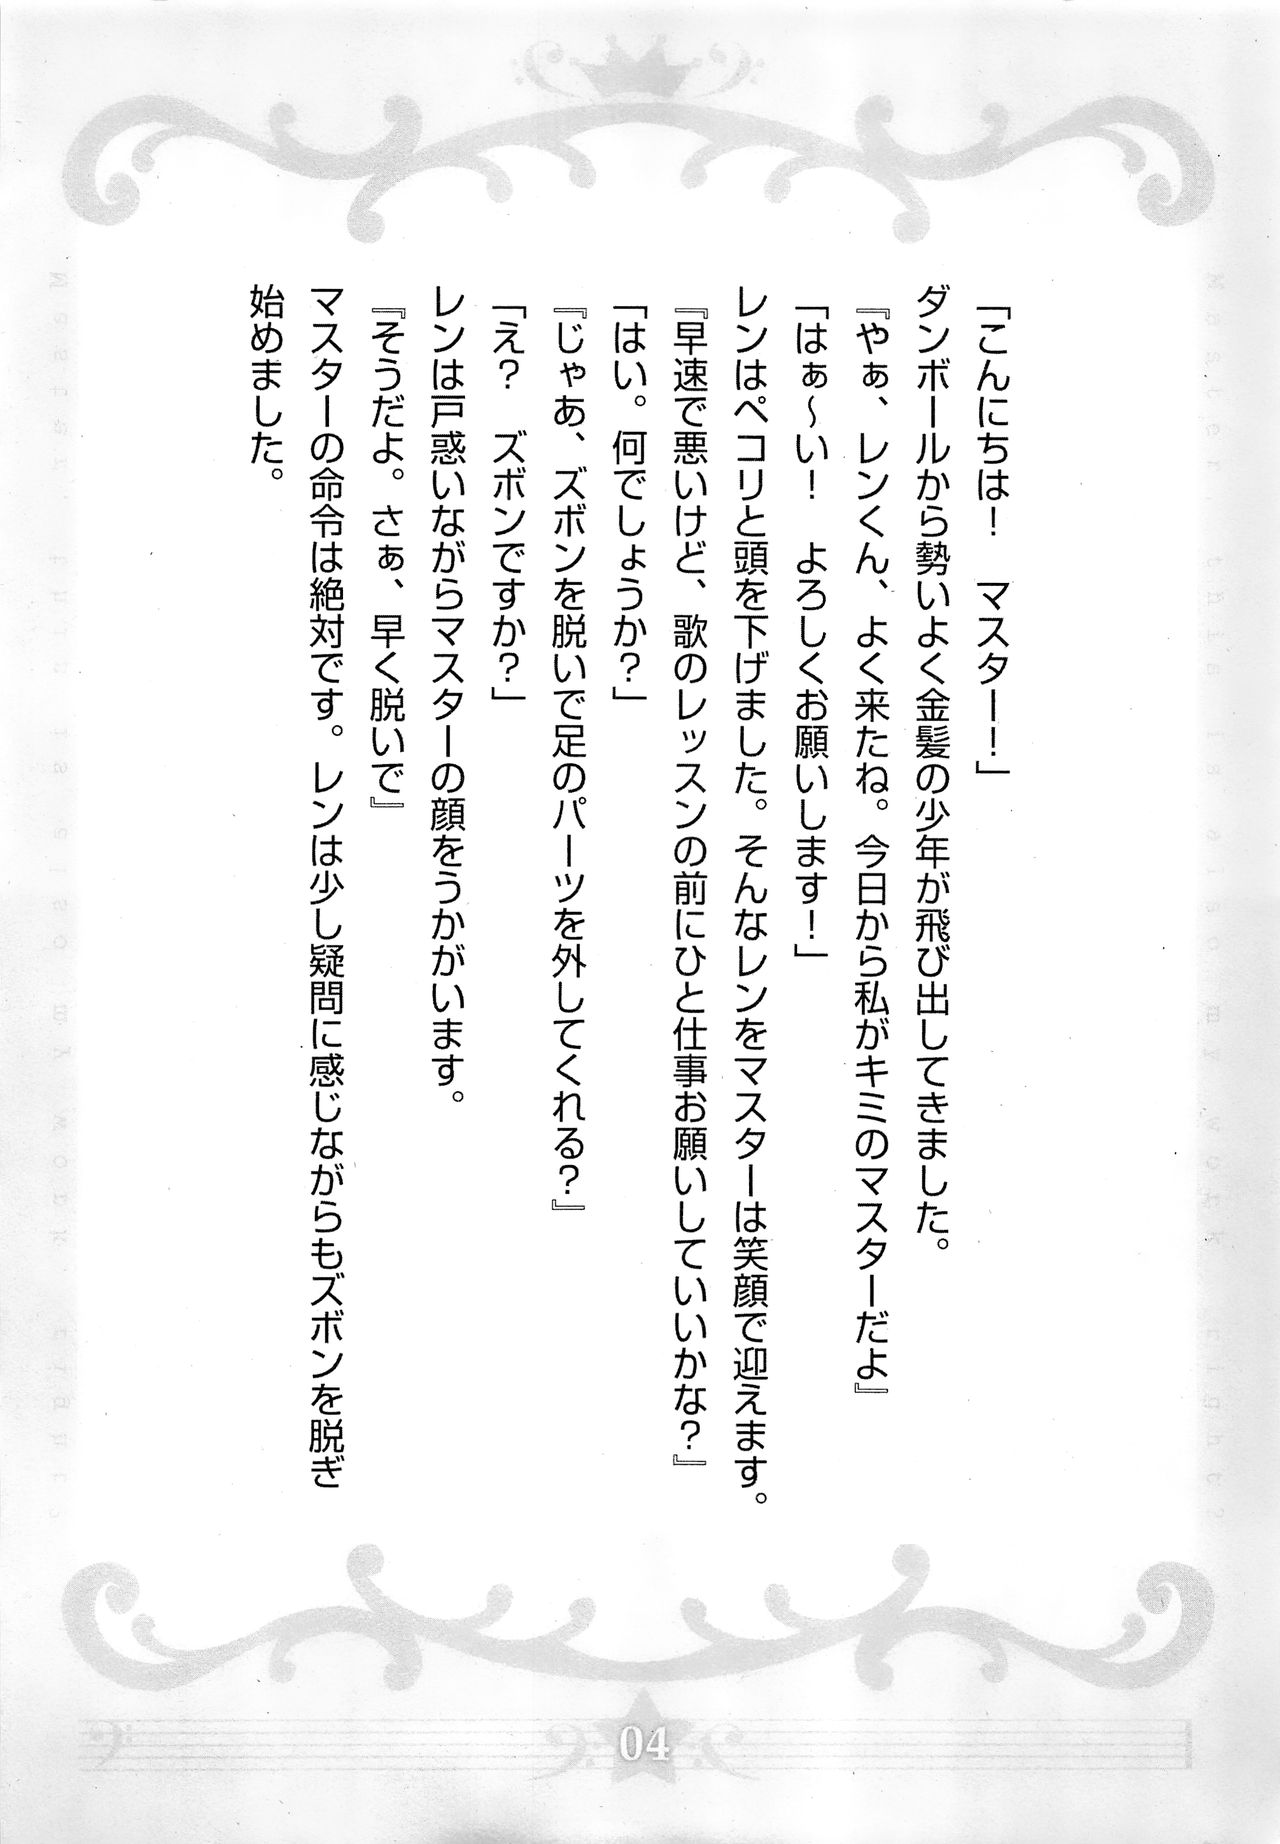 「こんにちは！　マスター！」
ダンボールから勢いよく金髪の少年が飛び出してきました。
『やぁ、レンくん、よく来たね。今日から私がキミのマスターだよ』
「はぁ～い！　よろしくお願いします！」
レンはペコリと頭を下げました。そんなレンをマスターは笑顔で迎えます。
『早速で悪いけど、歌のレッスンの前にひと仕事お願いしていいかな？』
「はい。何でしょうか？」
『じゃあ、ズボンを脱いで足のパーツを外してくれる？』
「え？　ズボンですか？」
レンは戸惑いながらマスターの顔をうかがいます。
『そうだよ。さぁ、早く脱いで』
マスターの命令は絶対です。レンは少し疑問に感じながらもズボンを脱ぎ
始めました。
04